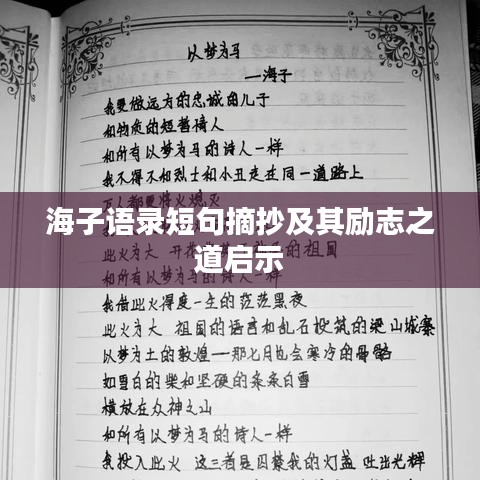 以梦为马
—海子
我要做远方的忠诚的儿子
和物质的短暂情人
和所有以梦为马的诗人一样
我不得不和烈士和小丑走在同一道路上
万人都要将火熄灭
海子语录短句摘抄及其励志之
道启示
此火为大 开花 祖国
和所有以梦为马的诗人一样
我借此火得度一生的茫茫黑夜
此火为大 祖国的语言和乱石投筑的梁山城寨
以梦为土的敦煌—那七月也会寒冷的骨骼
如雪白的柴和坚硬的条条白雪
横放在众神之山
和所有以梦为马的诗人一样
我投入此火 这三者是囚禁我的灯盏 吐出光辉